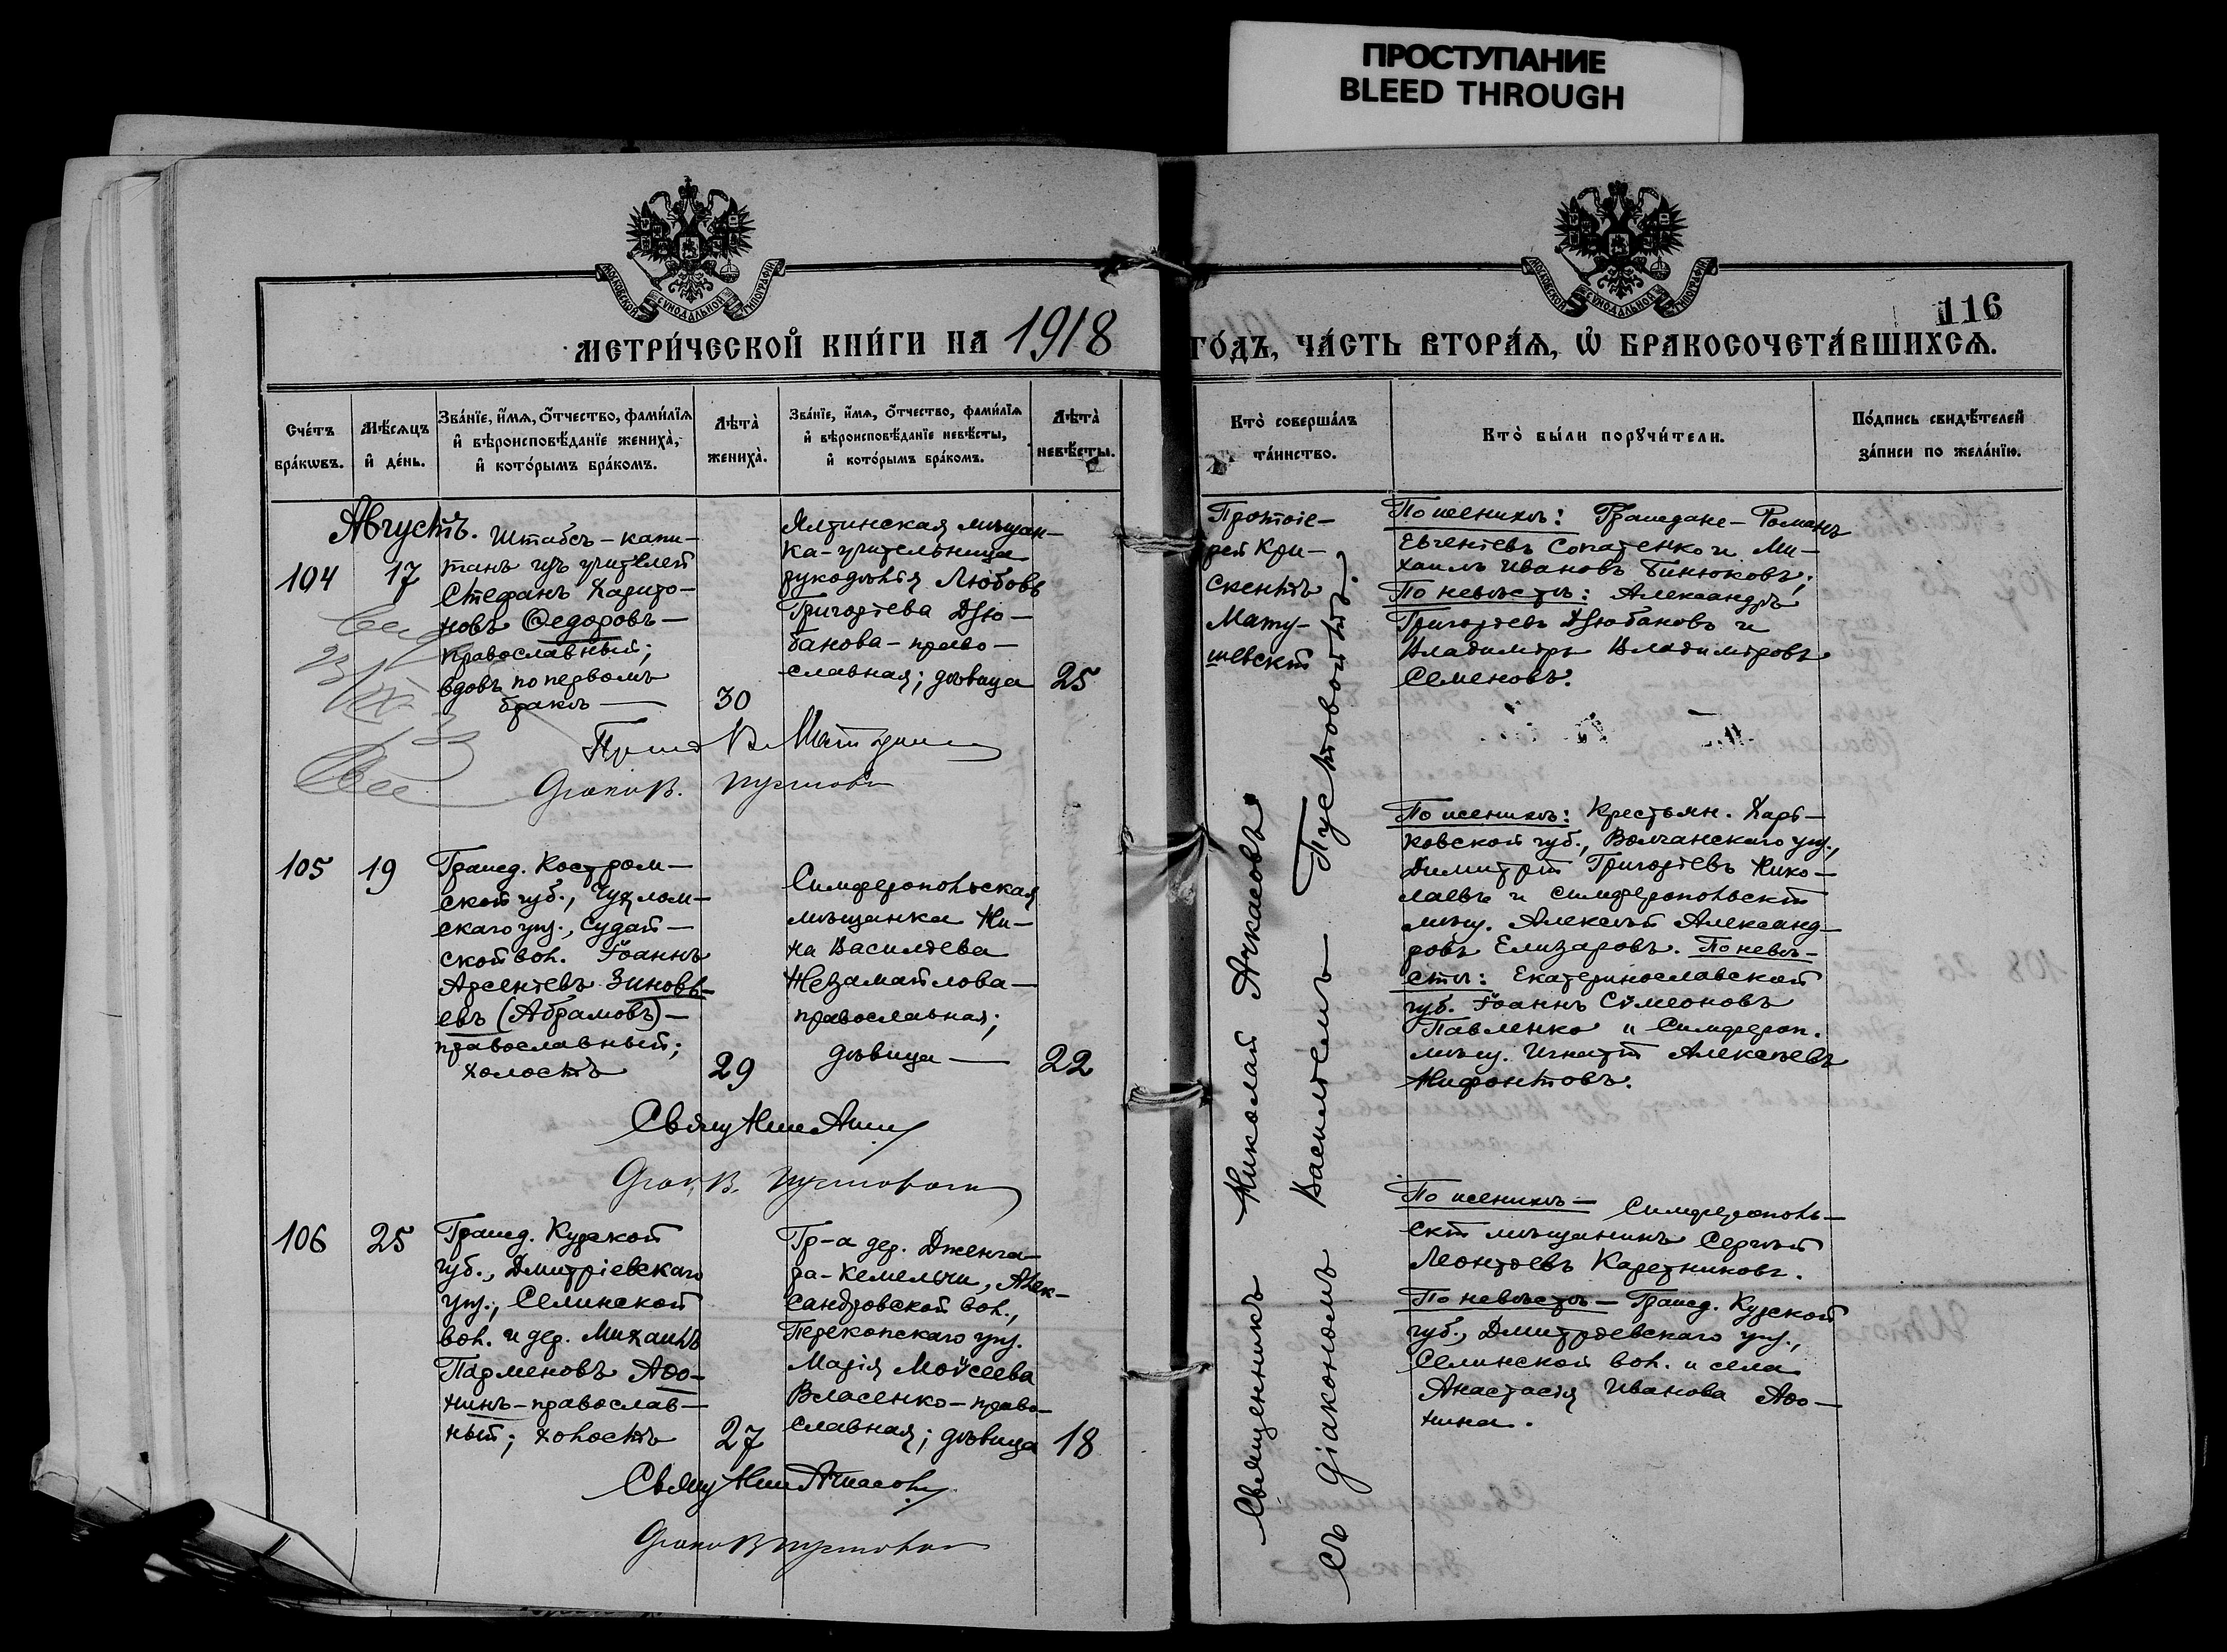 ПРОСТУПАНИЕ
BLEED THROUGH
МОСКОВСКОЙ СѴНОДАЛЬНОЙ ТИПОГРАФІИ
МОСКОВСКОЙ СѴНОДАЛЬНОЙ ТИПОГРАФІИ
116
МЕТРИ́ЧЕСКОЙ КНИ́ГИ НА 1918 ГО́ДЪ, ЧА́СТЬ ВТОРА́Ѧ, Ѡ҆ БРАКОСОЧЕТА́ВШИХСѦ.
Сче́тъ
бра́кѡвъ.
Мѣ́сѧцъ
и҆ де́нь.
Зва́нїе, и҆́мѧ, ѻ҆́тчество, фами́лїѧ
и҆ вѣроисповѣ́данїе жениха̀,
и҆ кото́рымъ бра́комъ.
Лѣта̀
жениха̀.
Зва́нїе, и҆́мѧ, ѻ҆́тчество, фами́лїѧ
и҆ вѣроисповѣ́данїе невѣ́сты,
и҆ кото́рымъ бра́комъ.
Лѣта̀
невѣ́сты.
Кто̀ соверша́лъ
та́инство.
Кто̀ бы́ли порꙋчи́тели.
По́дпись свидѣ́телей
за́писи по жела́нїю.
Августъ.
104
17
Штабсъ-капи-
танъ изъ учителей
Стефанъ Харито-
новъ Ѳедоровъ —
православный;
вдовъ по первомъ
бракѣ —
30
Ялтинская мѣщан-
ка-учительница
рукодѣлія Любовь
Григоріева Дзю-
банова - право-
славная; дѣвица
25
Протоіе-
рей Кри-
скентъ
Мату-
шевскій
По женихѣ: Граждане - Романъ
Евгеніевъ Сопатенко и Ми-
хаилъ Ивановъ Бинюковъ;
По невѣстѣ: Александръ
Григоріевъ Дзюбановъ и
Владиміръ Владиміровъ
Семеновъ.
105
19
Гражд. Костром-
ской губ., Чухлом-
скаго уѣз., Судай-
ской вол. Іоаннъ
Арсеніевъ Зиновь-
евъ (Абрамовъ) —
православный;
холостъ
29
Симферопольская
мѣщанка Ни-
на Василіева
Незамайлова —
православная;
дѣвица —
22
По женихѣ: Крестьян. Харь-
ковской губ., Волчанскаго уѣз.,
Димитрій Григоріевъ Нико-
лаевъ и симферопольскій
мѣщ. Алексѣй Александ-
ровъ Елизаровъ. По невѣ-
стѣ: Екатеринославской
губ. Іоаннъ Сѵмеоновъ
Павленко и Симфероп.
мѣщ. Игнатій Алексѣевъ
Нифонтовъ.
106
25
Гражд. Курской
губ., Дмитріевскаго
уѣз., Селинской
вол. и дер. Михаилъ
Парменовъ Афо-
нинъ - православ-
ный; холостъ
27
Гр-а дер. Дженга-
ра-Кемельчи, Алек-
сандровской вол.,
Перекопскаго уѣз.
Марія Моѵсеева
Власенко - право-
славная; дѣвица
18
По женихѣ — Симферополь-
скій мѣщанинъ Сергѣй
Леонтіевъ Каретниковъ.
По невѣстѣ — Гражд. Курской
губ., Дмитріевскаго уѣз.,
Селинской вол. и села
Анастасія Иванова Афо-
нина.
Священникъ Николай
съ діакономъ Василіемъ Пустовойтъ.